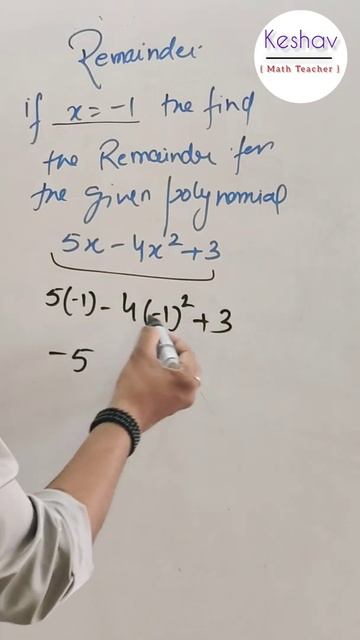 Keshav
( Math Teacher )
Remainder
if x = -1 the find
the Remainder for
the given polynomial
5x - 4x² + 3
5(-1) - 4(-1)² + 3
-5